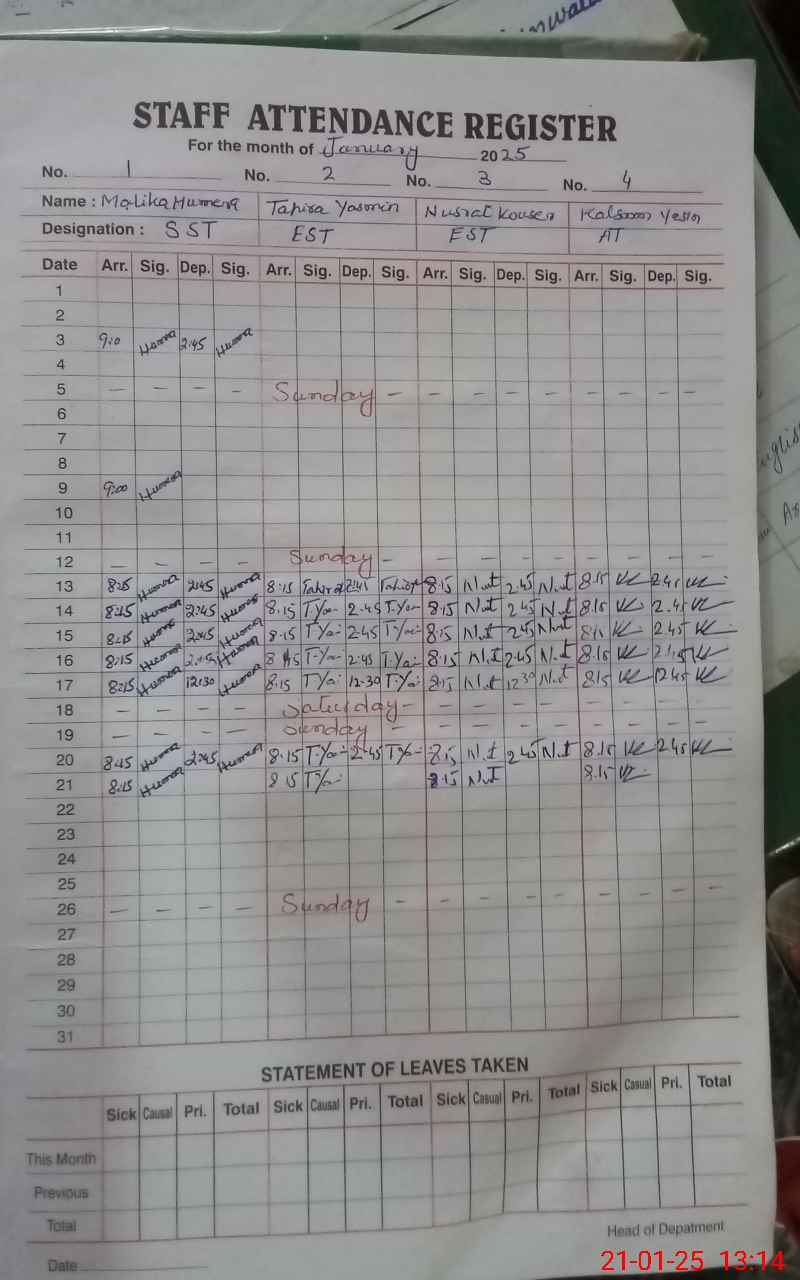 STAFF ATTENDANCE REGISTER
For the month of January 2025
No. 1 No. 2 No. 3 No. 4
Name : Malika Humera Tahira Yasmin Nusrat Kouser Kalsoom
Designation : SST EST EST AT
Date Arr. Sig. Dep. Sig. Arr. Sig. Dep. Sig. Arr. Sig. Dep. Sig. Arr. Sig. Dep. Sig.
1
2
3 9:0 Humera 2:45 Humera
4
5 — — — — Sunday — — — — — — — — —
6
7
8
9 9:00 Humera
10
11
12 — — — — Sunday — — — — — — — — —
13 8:15 Humera 2:45 Humera 8:15 Tahira 2:45 Tahira 8:15 N.t 2.45 N.t 8.15 2.45
14 8:15 Humera 2:45 Humera 8.15 T.Ya 2.45 T.Ya 8.15 N.t 2.45 N.t 8.15 2.45
15 8:15 Humera 2:45 Humera 8.15 T.Ya 2.45 T.Ya 8.15 N.t 2.45 N.t 8.15 2.45
16 8:15 Humera 2:45 Humera 8.15 T.Ya 2.45 T.Ya 8.15 N.t 2.45 N.t 8.15 2.45
17 8:15 Humera 12:30 Humera 8.15 T.Ya 12.30 T.Ya 8.15 N.t 12.30 N.t 8.15 12.45
18 — — — — Saturday — — — — — — — — —
19 — — — — Sunday — — — — — — — — —
20 8:15 Humera 2:45 Humera 8.15 T.Ya 2.45 T.Ya 8.15 N.t 2.45 N.t 8.15 2.45
21 8:15 Humera 8.15 T.Ya 8.15 N.t 8.15
22
23
24
25
26 — — — — Sunday — — — — — — — — —
27
28
29
30
31
STATEMENT OF LEAVES TAKEN
Sick Causal Pri. Total Sick Causal Pri. Total Sick Casual Pri. Total Sick Casual Pri. Total
This Month
Previous
Total
Head of Depatment
Date
21-01-25 13:14